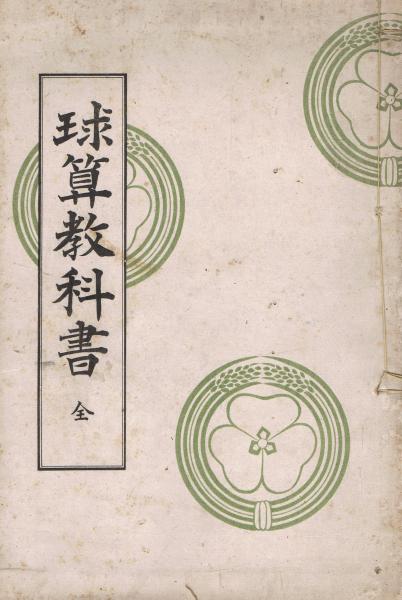 球算教科書 全